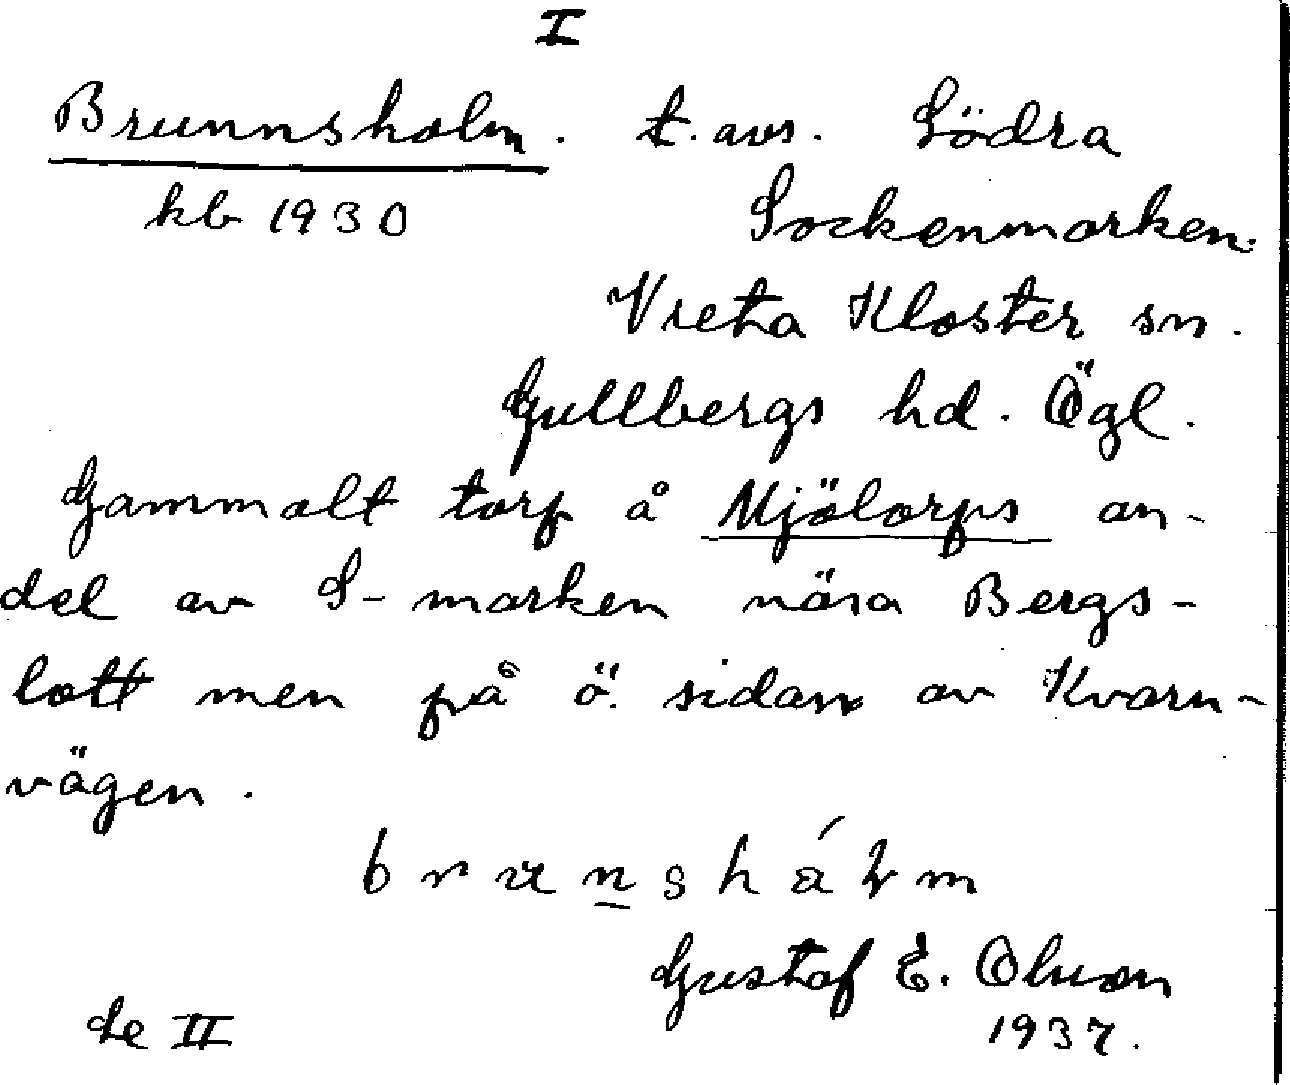 I
Brunnsholm. t. avs. Södra
kb 1930 Sockenmarken.
Vreta Kloster sn.
Gullbergs hd. Ögl.
Gammalt torp å Mjölorps an-
del av S-marken nära Bergs-
lott men på ö. sidan av Kvarn-
vägen.
Gustaf E. Olsson
Se II 1937.